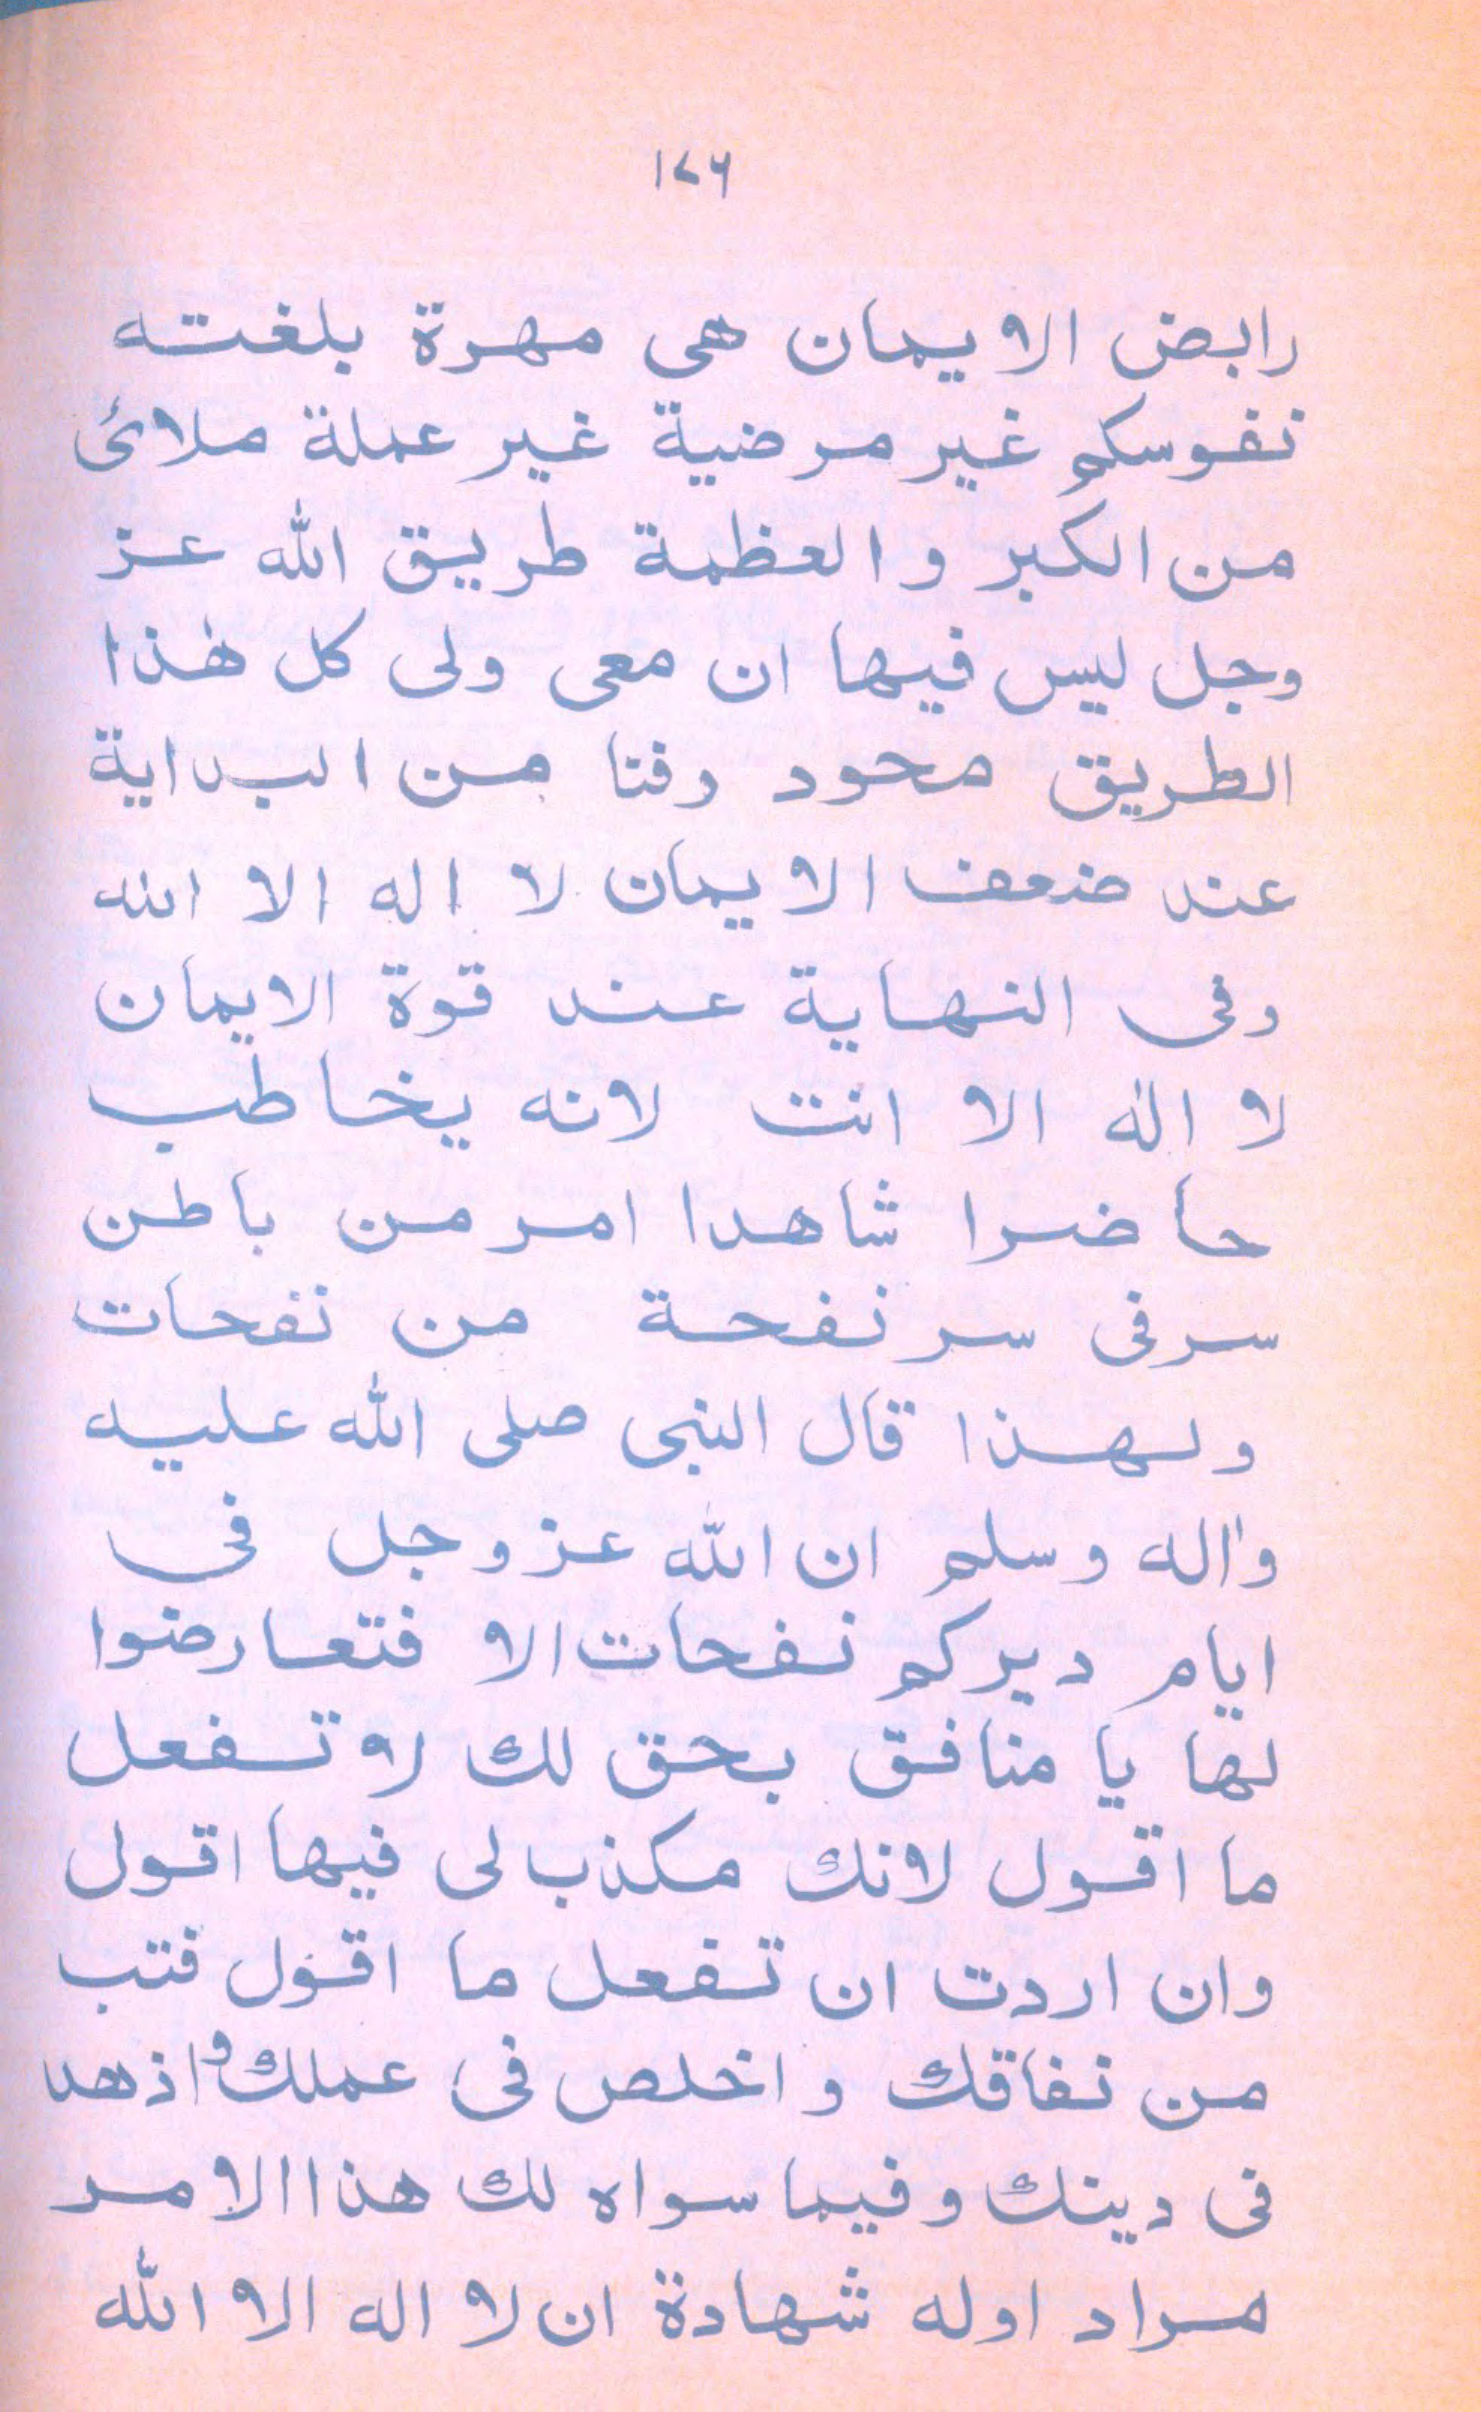 ١٧٦
رابض الايمان هى مهرة بلغته
نفوسكم غير مرضية غير عملة ملائى
من الكبر والعظمة طريق الله عز
وجل ليس فيها ان معى ولى كل هٰذا
الطريق محود وفنا من البداية
عند ضعف الايمان لا اله الا الله
وفى النهاية عند قوة الايمان
لا الٰه الا انت لانه يخاطب
حاضرا شاهدا امر من باطن
سر فى سر نفحة من نفحات
ولهذا قال النبى صلى الله عليه
واٰله وسلم ان الله عز وجل فى
ايام ديركم نفحات الا فتعارضوا
لها يا منافق بحق لك لا تفعل
ما اقول لانك مكذب لى فيها اقول
وان اردت ان تفعل ما اقول فتب
من نفاقك واخلص فى عملك و اذهد
فى دينك وفيما سواه لك هذا الامر
مراد اوله شهادة ان لا اله الا الله